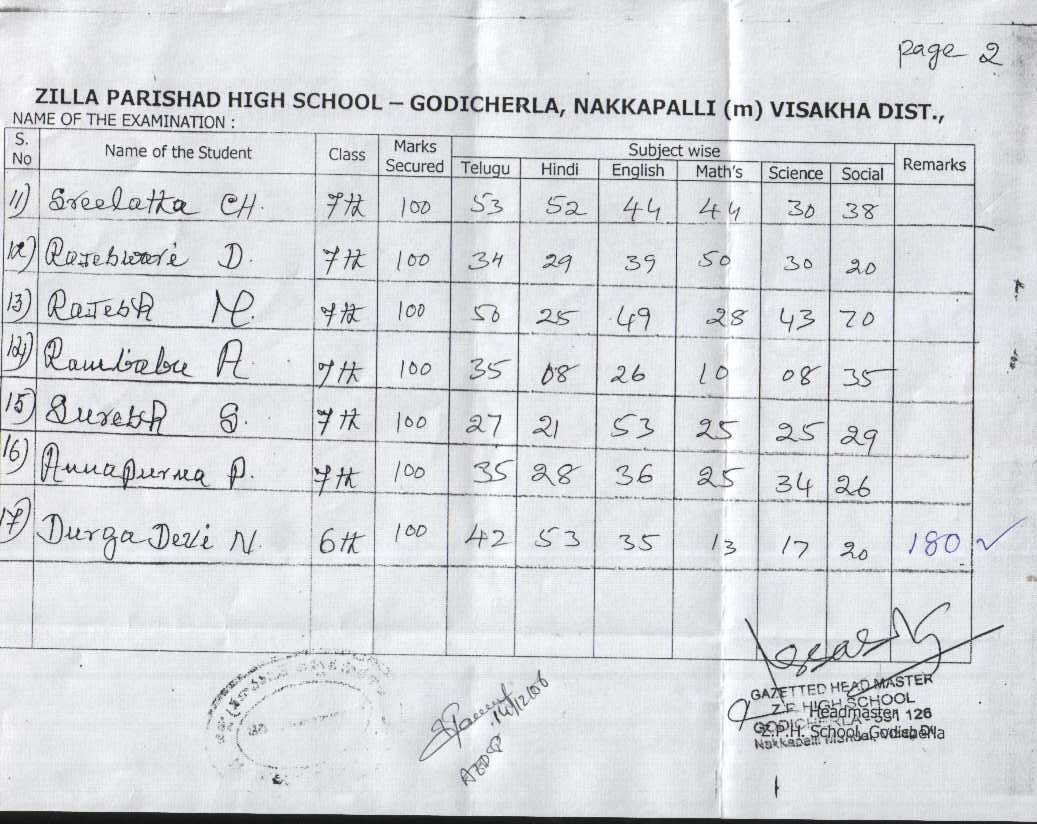 page 2
ZILLA PARISHAD HIGH SCHOOL – GODICHERLA, NAKKAPALLI (m) VISAKHA DIST.,
NAME OF THE EXAMINATION :
S. No Name of the Student Class Marks Secured Subject wise Remarks
Telugu Hindi English Math's Science Social
11) Sreelatha CH. 7th 100 53 52 44 44 30 38
12) Rajeswari D. 7th 100 34 29 39 50 30 20
13) Rajesh M. 7th 100 50 25 49 28 43 70
14) Rambabu A. 7th 100 35 08 26 10 08 35
15) Suresh S. 7th 100 27 21 53 25 25 29
16) Annapurna P. 7th 100 35 28 36 25 34 26
17) Durga Devi N. 6th 100 42 53 35 13 17 20 180 ✓
14/12/06
GAZETTED HEAD MASTER
Z.P. HIGH SCHOOL
Headmaster
GODICHERLA - 531 126
Z.P.H. School, Godicherla
Nakkapalli Mandal,